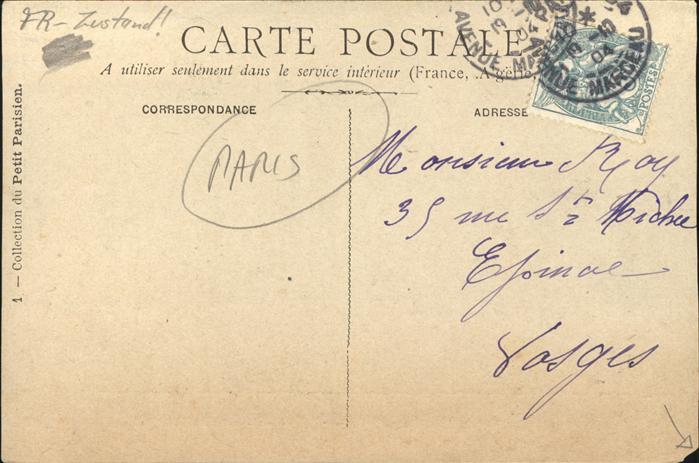 FR- Zustand!
CARTE POSTALE
A utiliser seulement dans le service intérieur (France, Algérie
CORRESPONDANCE
ADRESSE
PARIS
Monsieur Roy
35 rue St Michel
Epinal
Vosges
1 — Collection du Petit Parisien.
AVENUE MARCEAU
04
POSTES